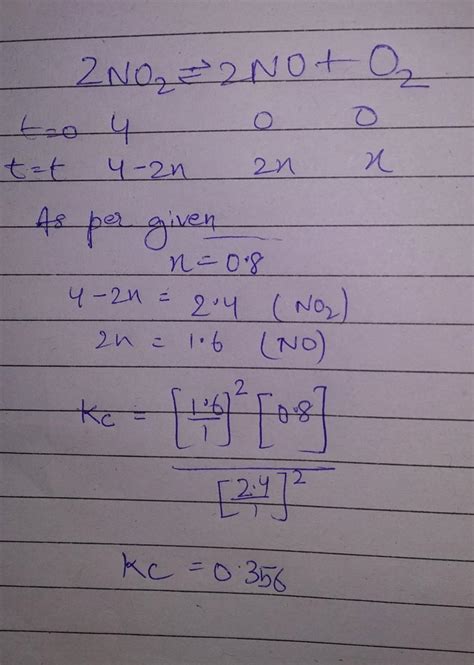 2NO₂ ⇌ 2NO + O₂
t=0 4 0 0
t=t 4-2x 2x x
As per given
x = 0.8
4-2x = 2.4 (NO₂)
2x = 1.6 (NO)
Kc = [1.6/1]² [0.8] / [2.4/1]²
Kc = 0.356